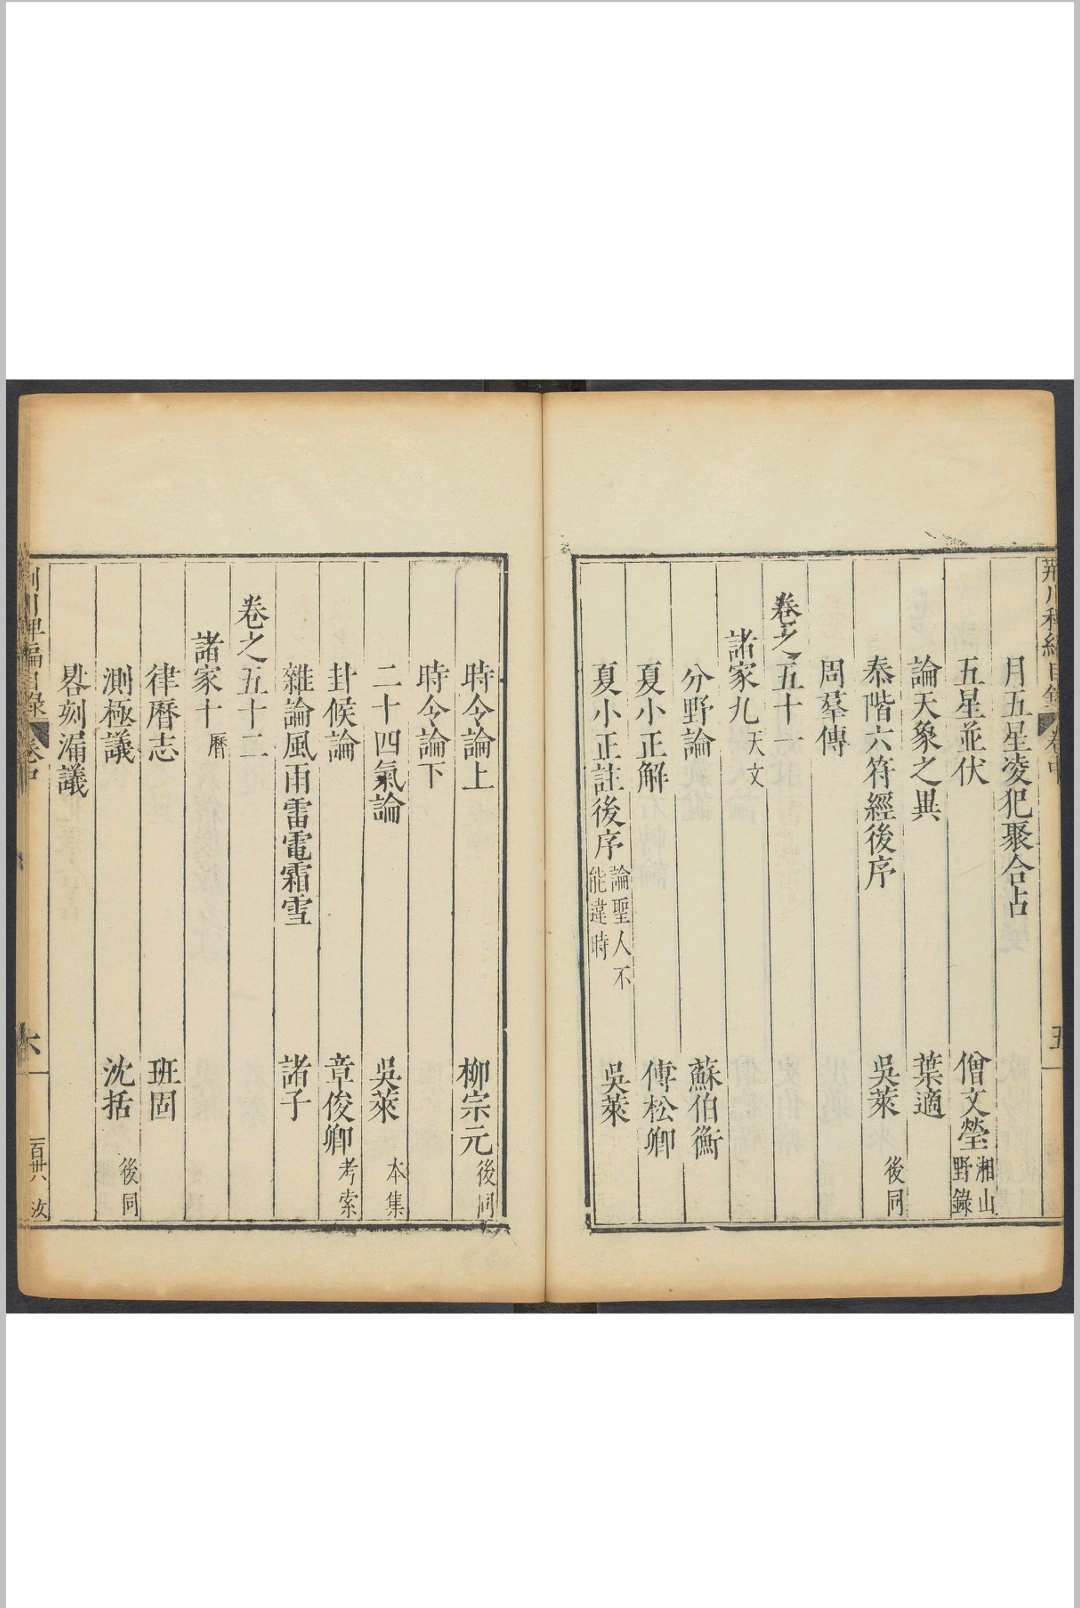 荆川稗編目錄 卷中 五
月五星凌犯聚合占
五星並伏 僧文瑩 湘山野錄
論天象之異 葉適
泰階六符經後序 吳萊 後同
周羣傳
卷之五十一
諸家九 天文
分野論 蘇伯衡
夏小正解 傅松卿
夏小正註後序 論聖人不能違時 吳萊
時令論上 柳宗元 後同
時令論下
二十四氣論 吳萊 本集
卦候論 章俊卿 考索
雜論風雨雷電霜雪 諸子
卷之五十二
諸家十 曆
律曆志 班固
測極議 沈括 後同
晷刻漏議
荆川稗編目錄 卷中 六 一百卅六 汝